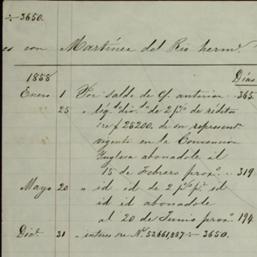 ÷ 3650.
es con Martinez del Rio herm.ˢ
1888 Dias
Enero 1 Por saldo de c/ anterior 365
25 " liqᵒ divᵒ de 2 p% de rédito
s/ $ 26200. de su represent
vigente en la Convencion
Inglesa abonadole el
15 de Febrero proxᵒ 319
Mayo 20 " id id de 2 p% id
id id abonadole
al 20 de Junio proxᵒ 194
Dicᵉ 31 " interes s/ Nᵒ 52661,887 ÷ 3650.